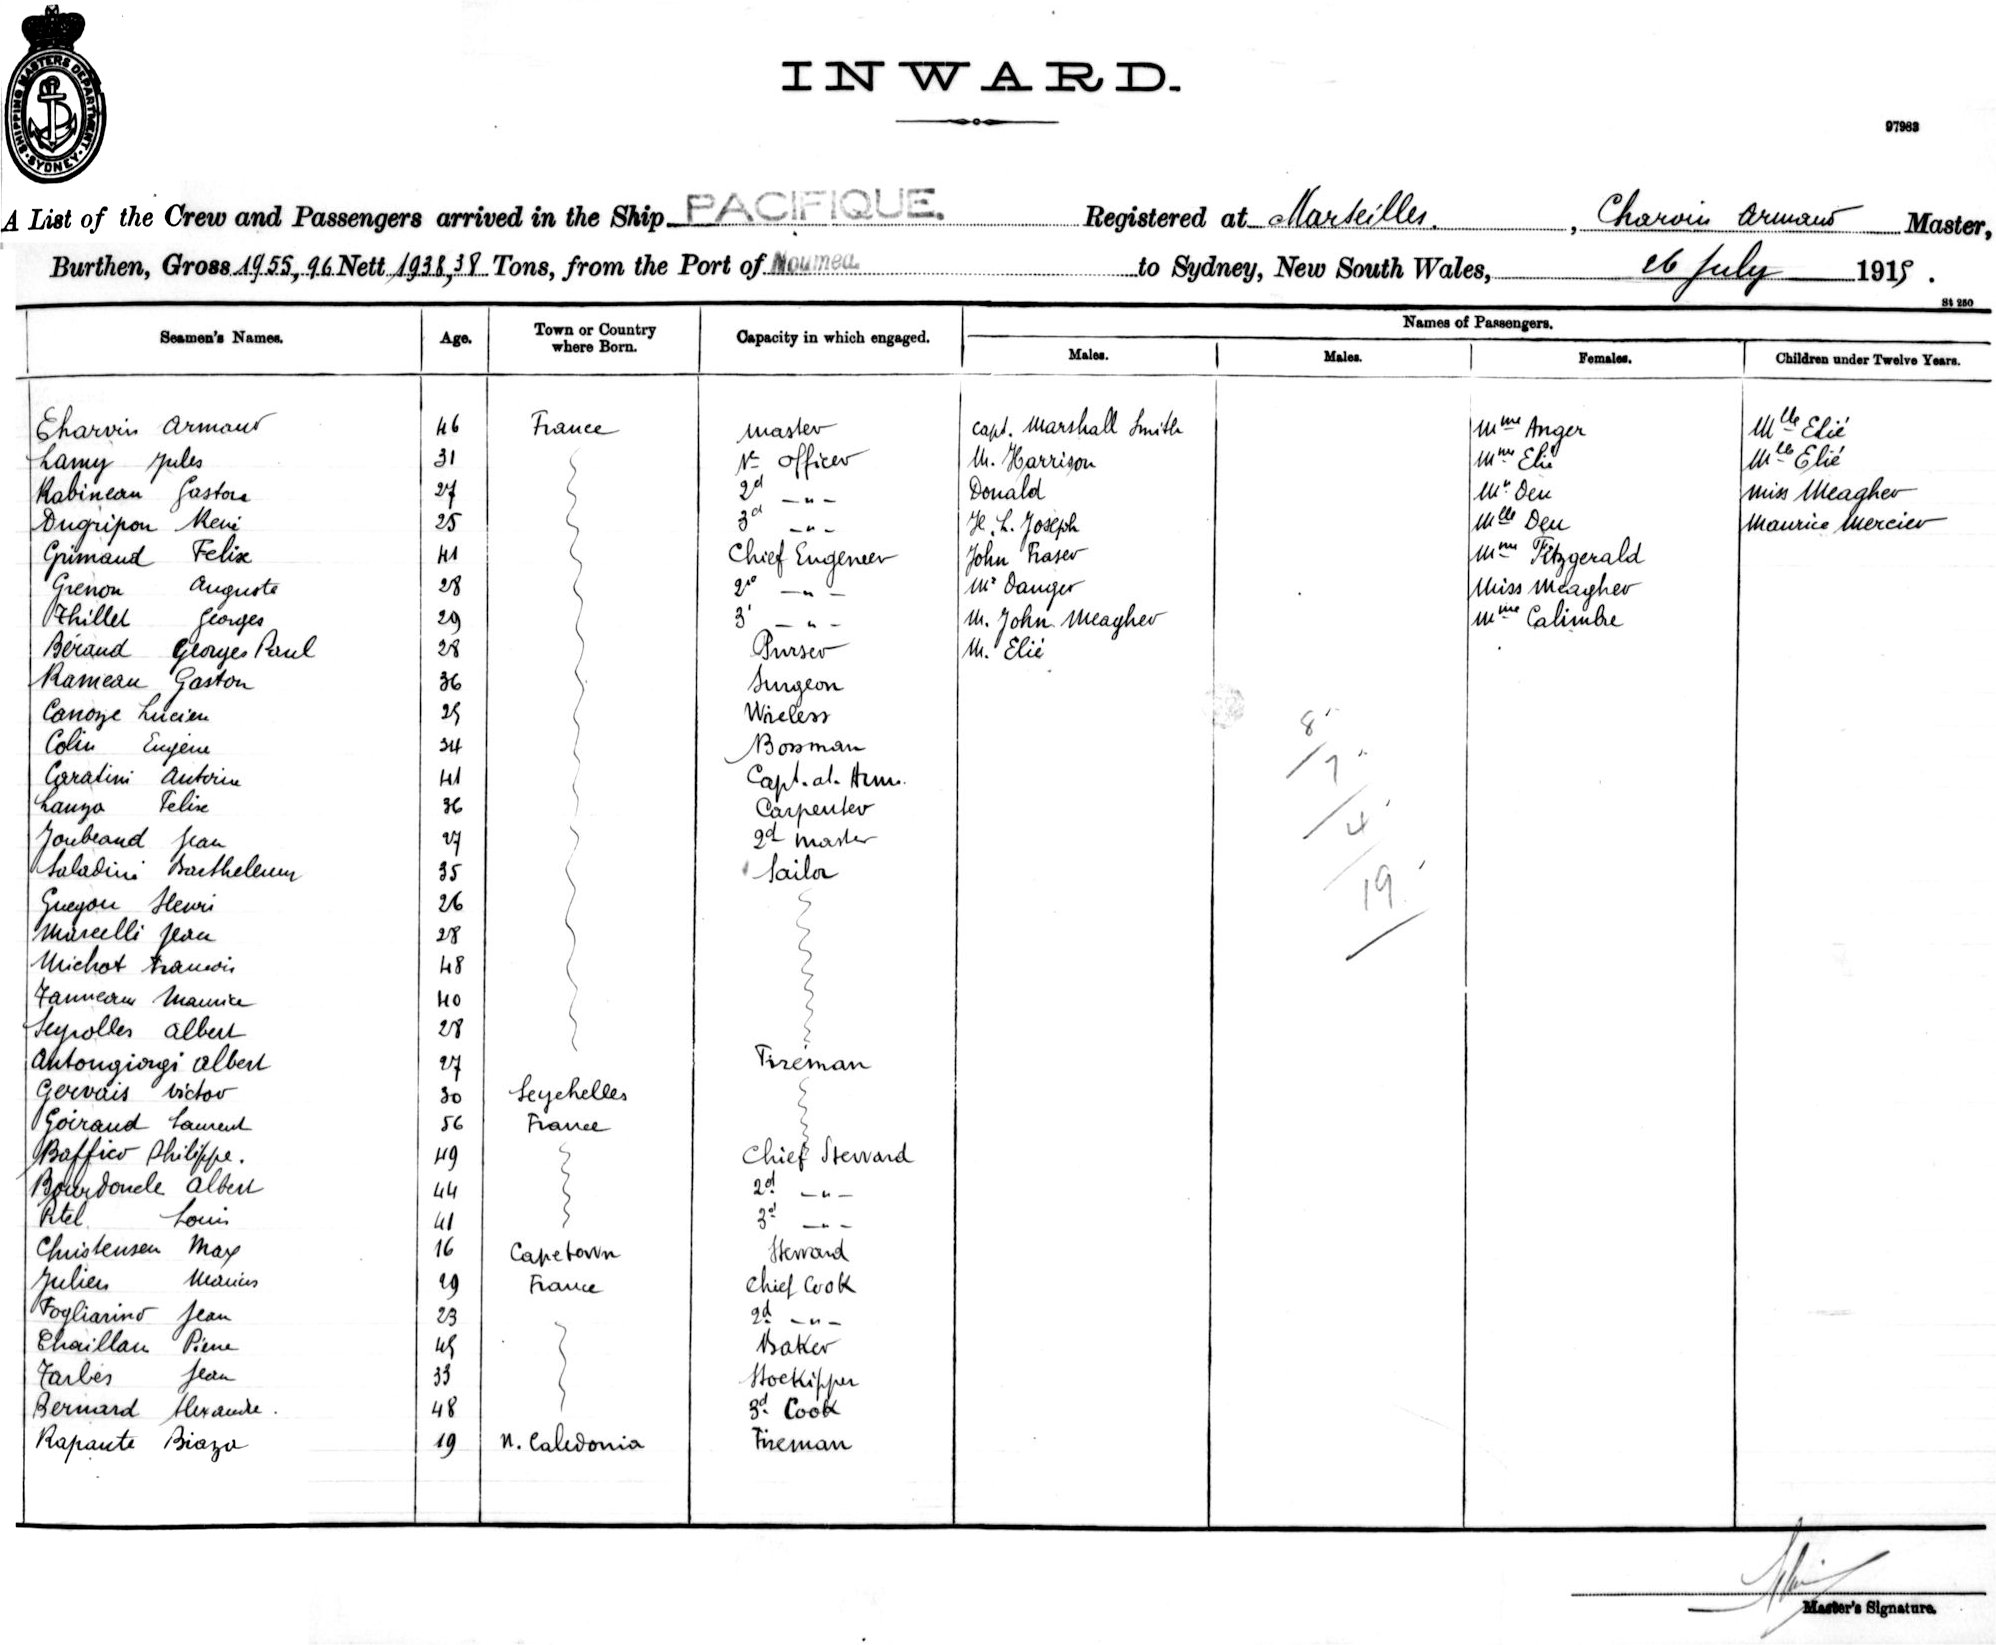 SHIPPING MASTERS DEPARTMENT SYDNEY
INWARD.
97983
A List of the Crew and Passengers arrived in the Ship PACIFIQUE. Registered at Marseilles. , Charvin Armand Master,
Burthen, Gross 1955,96 Nett 1938,38 Tons, from the Port of Noumea to Sydney, New South Wales, 26 July 1915.
St 250
Seamen's Names. Age. Town or Country where Born. Capacity in which engaged. Names of Passengers.
Males. Males. Females. Children under Twelve Years.
Charvin Armand 46 France Master Capt. Marshall Smith Mme Anger Mlle Elié
Lamy Jules 31 officer M. Harrison Mme Elié Mlle Elié
Rabineau Gaston 27 2d -"- Donald Mr Deu Miss Meagher
Dugripon René 25 3d -"- H. L. Joseph Mlle Deu Maurice Mercier
Grimaud Felix 41 Chief Engeneer John Fraser Mme Fitzgerald
Grenon Auguste 28 2d -"- Mr Danger Miss Meagher
Thillet Georges 29 3' -"- M. John Meagher Mme Calimbre
Béraud Georges Paul 28 Purser M. Elié
Rameau Gaston 36 Surgeon
Canoze Lucien 25 Wireless
Colin Eugène 34 Bosman
Caratini Antoine 41 Capt. at. Arms.
Lanzo Felix 36 Carpenter
Joubeaud Jean 27 2d master
Saladini Barthelemy 35 Sailor
Gueyou Henri 26
Marcelli Jean 28
Michot Francois 48
Tanneau Maurice 40
Seyrolles Albert 28
Antongiorgi Albert 27 Fireman
Gervais Victor 30 Seychelles
Goiraud Laurent 56 France
Baffico Philippe. 49 Chief Steward
Bourdoncle Albert 44 2d -"-
Petel Louis 41 3d -"-
Christensen Max 16 Capetown Steward
Julien Marius 29 France Chief Cook
Fogliarino Jean 23 2d -"-
Chaillan Pierre 45 Baker
Tarbes Jean 33 Stockipper
Bernard Alexandre. 48 3d Cook
Rapaute Biazo 19 N. Caledonia Fireman
8
7
4
19
Master's Signature.